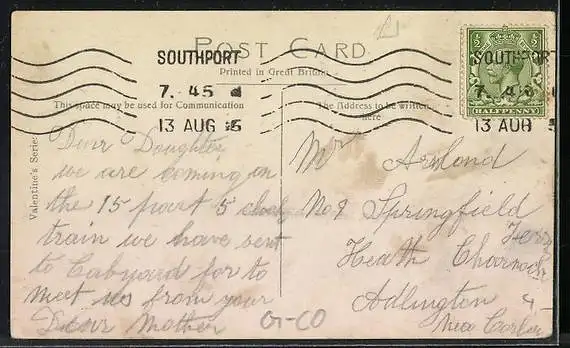 POST CARD
Printed in Great Britain
SOUTHPORT
7. 45
13 AUG 5
SOUTHPORT
7. 45
13 AUG 5
½ ½
HALFPENNY
This space may be used for Communication
The Address to be written
here
Valentine's Series
Dear Doughter
we are coming on
the 15 part 5 clock
train we have sent
to Cabyard for to
meet us from your
Dear Mother
Mr
No 9 Springfield
Heath Charnock
Adlington
Near
G-CO